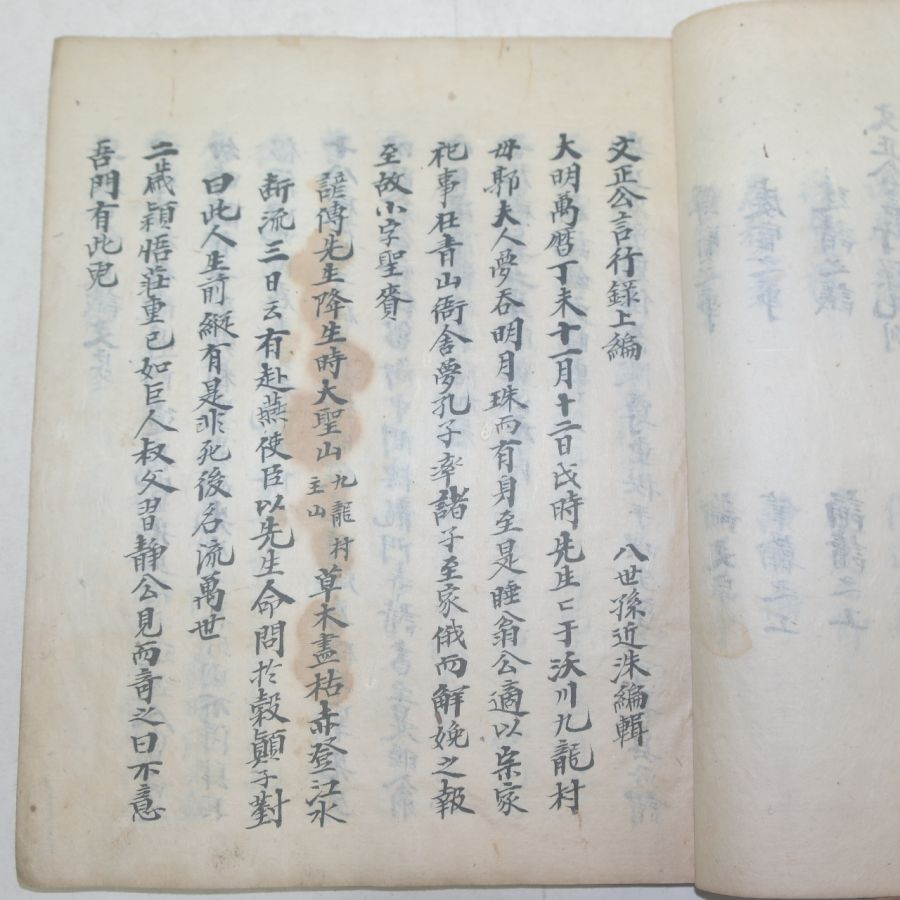 文正公言行錄上編 八世孫近洙編輯
大明萬曆丁未十一月十二日戌時先生亡于沃川九龍村
母郭夫人夢吞明月珠而有身至是睡翁公適以宗家
祀事在青山衙舍夢孔子率諸子至家俄而解娩之報
至故小字聖賚
諺傳先生降生時大聖山九龍村主山草木盡枯赤登江水
斷流三日云有赴燕使臣以先生命問於穀顚子對
曰此人生前縱有是非死後名流萬世
二歲穎悟莊重已如巨人叔父習靜公見而奇之曰不意
吾門有此兒